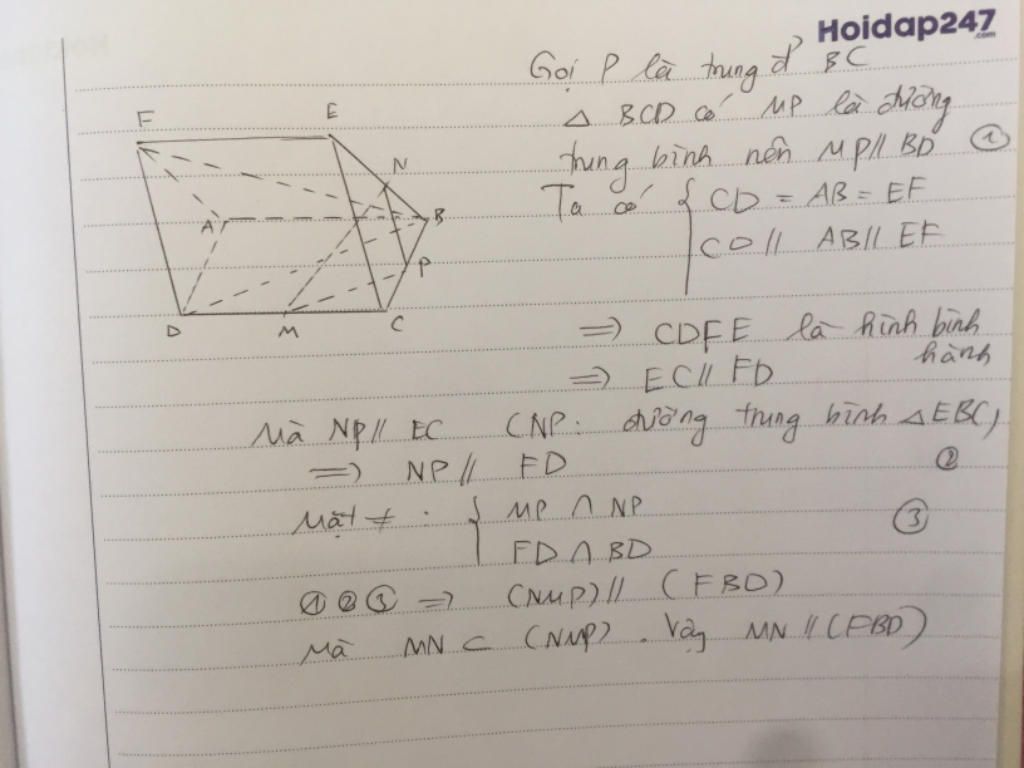 Hoidap247
.com
Gọi P là trung đ' BC
△ BCD có MP là đường
trung bình nên MP // BD ①
Ta có { CD = AB = EF
CD // AB // EF
=> CDFE là hình bình
hành
=> EC // FD
Mà NP // EC (NP: đường trung bình △EBC)
=> NP // FD ②
Mặt ≠ : { MP ∩ NP ③
FD ∩ BD
① ② ③ => (NMP) // (FBD)
Mà MN ⊂ (NMP). Vậy MN // (FBD)
F E
N
A B
P
D M C